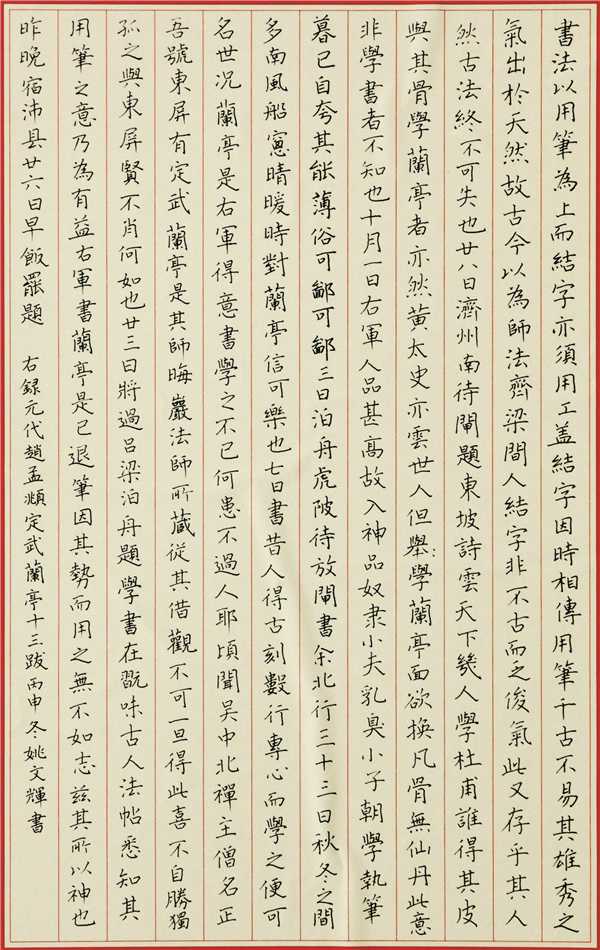 書法以用筆為上而結字亦須用工盖結字因時相傳用筆千古不易其雄秀之
氣出於天然故古今以為師法齊梁間人結字非不古而乏俊氣此又存乎其人
然古法終不可失也廿八日濟州南待閘題東坡詩雲天下幾人學杜甫誰得其皮
與其骨學蘭亭者亦然黃太史亦雲世人但舉學蘭亭面欲換凡骨無仙丹此意
非學書者不知也十月一日右軍人品甚高故入神品奴隶小夫乳臭小子朝學執筆
暮已自夸其能薄俗可鄙可鄙三日泊舟虎陂待放閘書余北行三十三日秋冬之間
多南風船窻晴暖時對蘭亭信可樂也七日書昔人得古刻數行專心而學之便可
名世况蘭亭是右軍得意書學之不已何患不過人耶頃聞吴中北禪主僧名正
吾號東屏有定武蘭亭是其師晦巖法師所藏從其借觀不可一旦得此喜不自勝獨
孤之與東屏賢不肖何如也廿三日將過吕梁泊舟題學書在翫味古人法帖悉知其
用筆之意乃為有益右軍書蘭亭是已退筆因其勢而用之無不如志兹其所以神也
昨晚宿沛县廿六日早飯罷題 右録元代趙孟兆頁定武蘭亭十三跋丙申冬姚文輝書